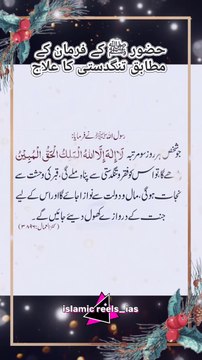 حضور ﷺ کے فرمان کے
مطابق تنگدستی کا علاج
رسول اللہ ﷺ نے فرمایا:
جو شخص ہر روز سو مرتبہ لَا إِلٰهَ إِلَّا اللهُ الْمَلِكُ الْحَقُّ الْمُبِيْنُ
پڑھے گا تو اس کو فقر و تنگدستی سے پناہ ملے گی، قبر کی وحشت سے
نجات ہوگی، مال و دولت سے نوازا جائے گا اور اس کے لیے
جنت کے دروازے کھول دیئے جائیں گے۔
(کنز العمال: ۳۸۹۶)
islamic reels_nas